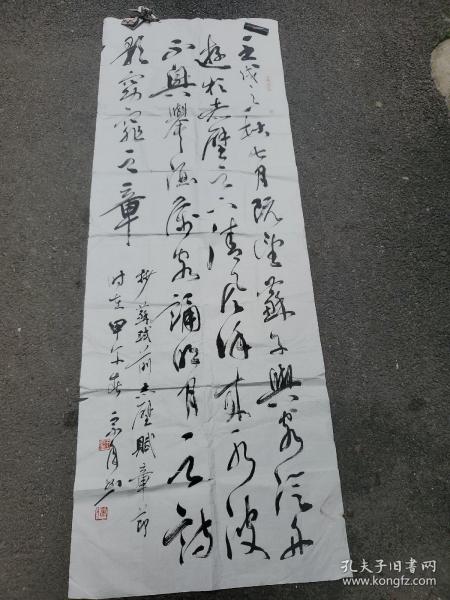 壬戌之秋七月既望蘇子與客泛舟
遊於赤壁之下清风徐来水波
不興舉酒属客誦明月之詩
歌窈窕之章
抄蘇轼前赤壁賦章節
时在甲午春
孔夫子旧书网
www.kongfz.com